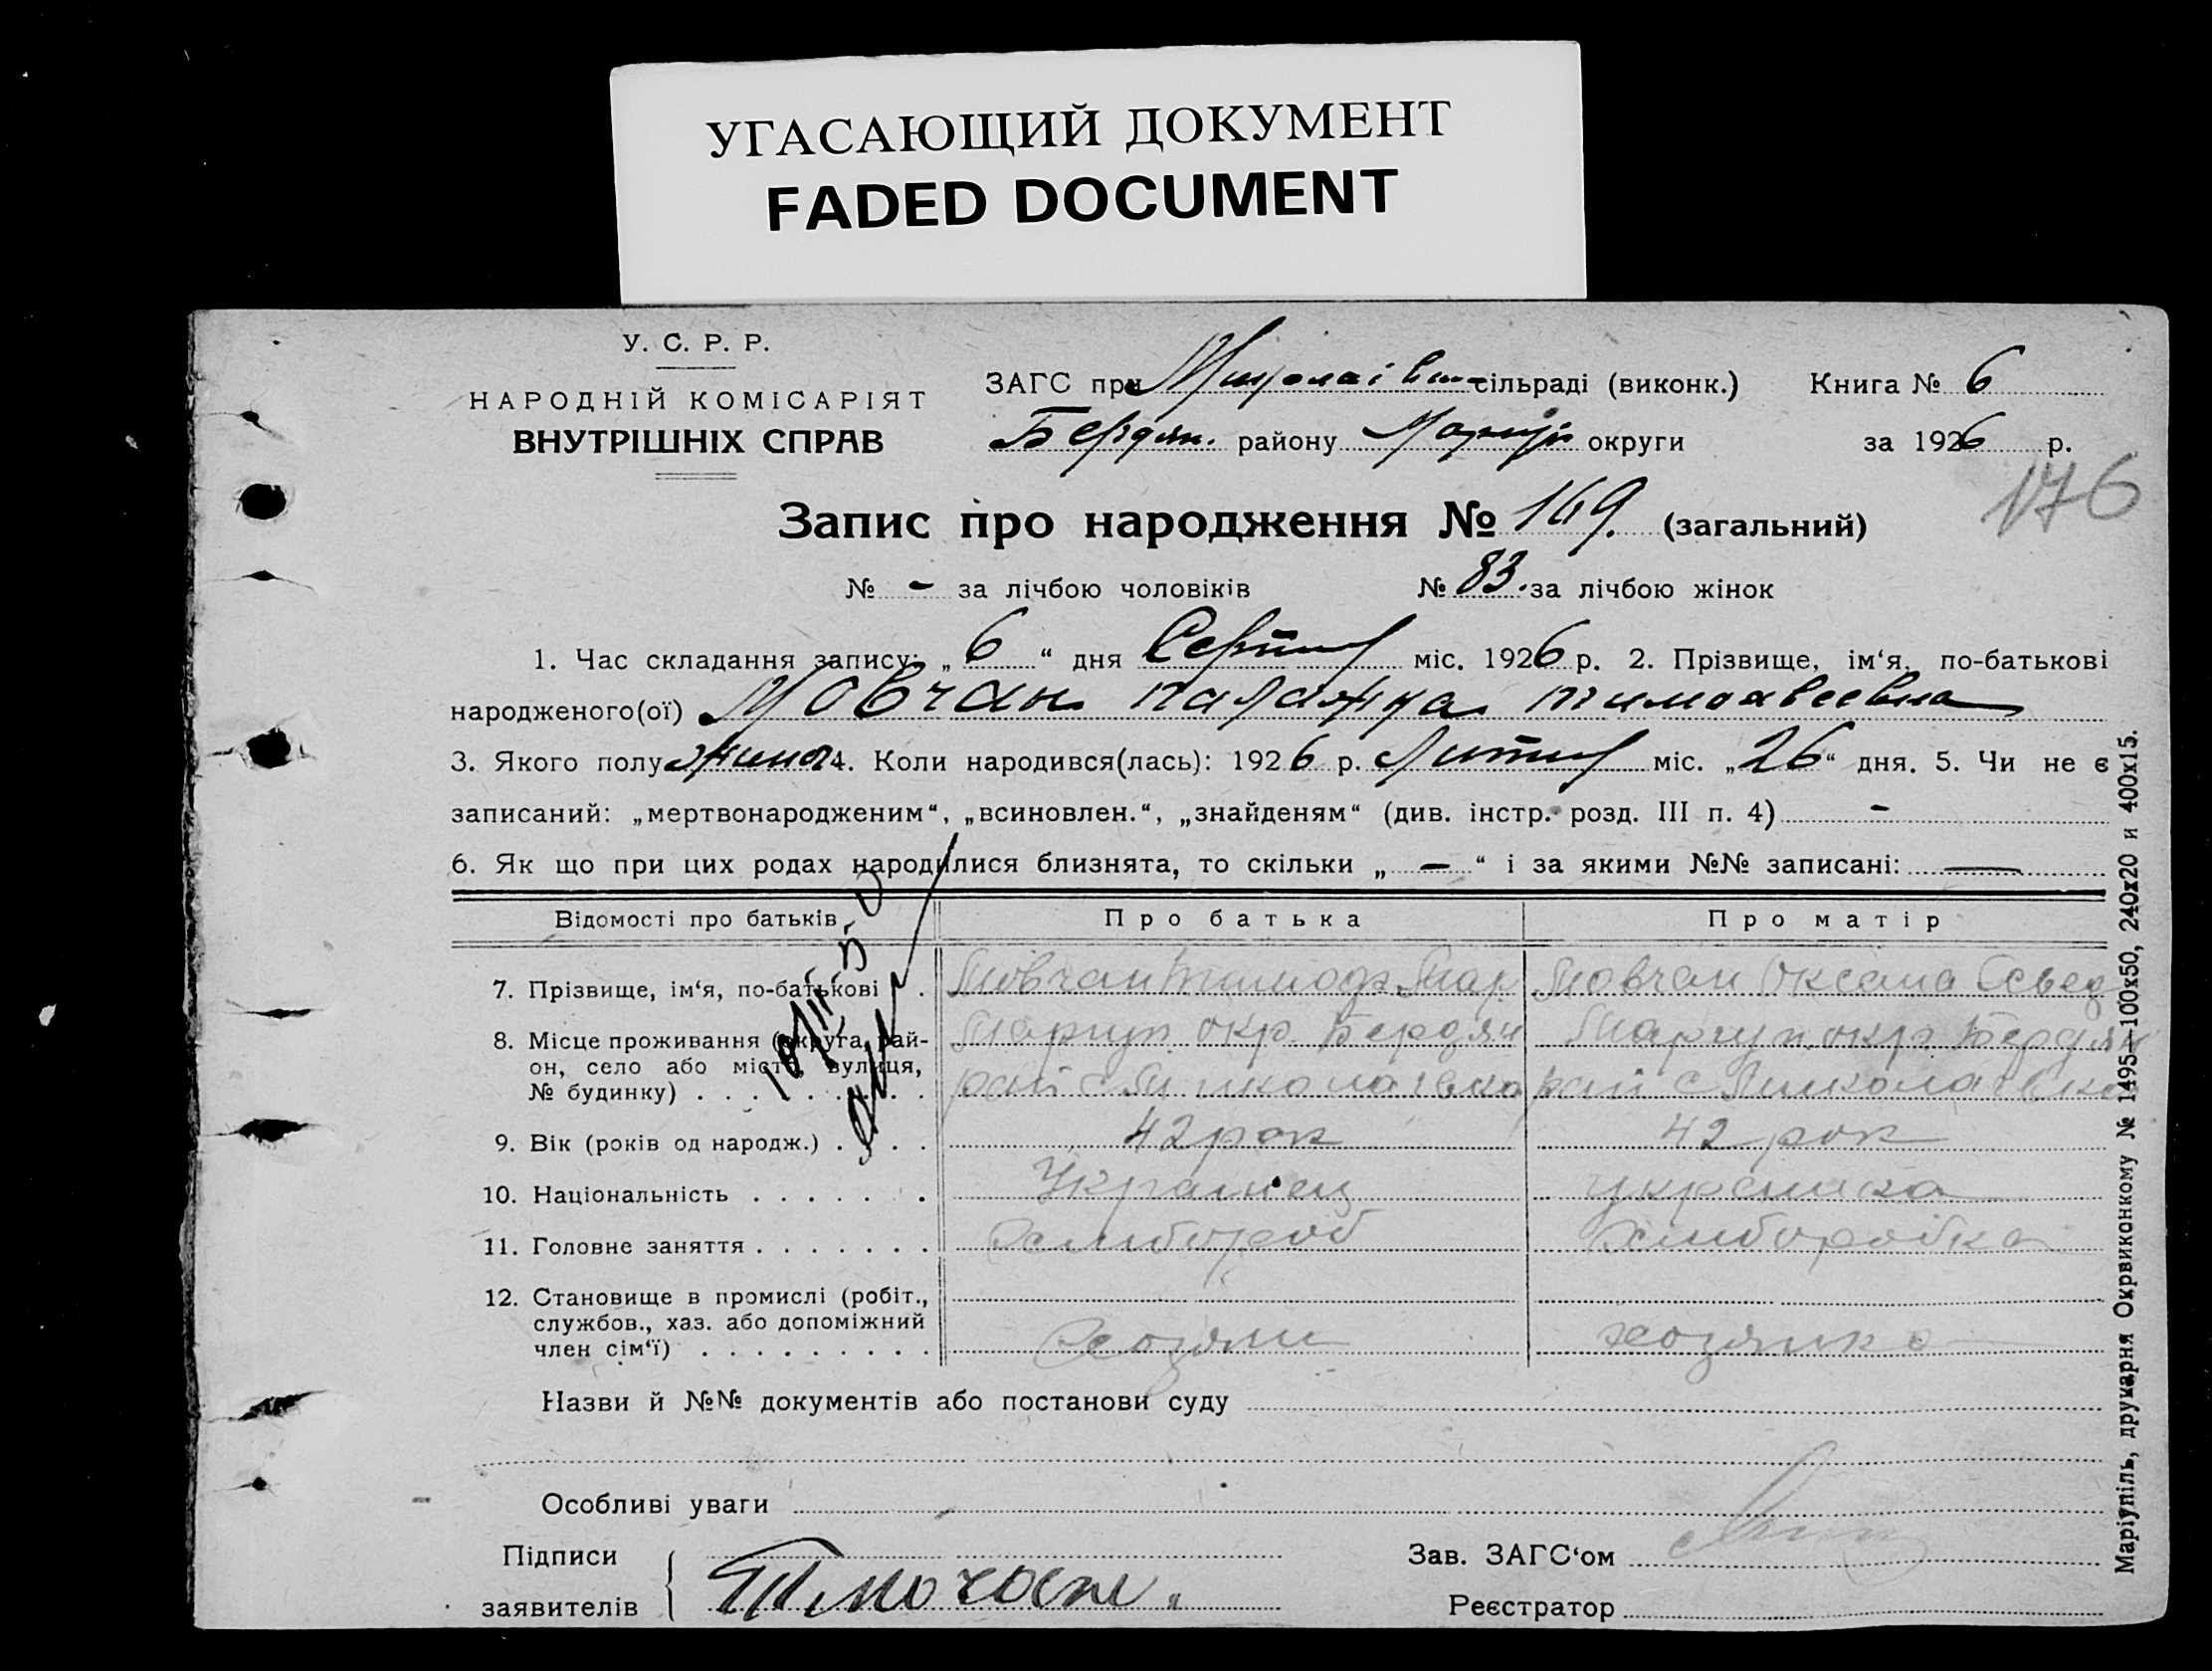 УГАСАЮЩИЙ ДОКУМЕНТ
FADED DOCUMENT
У. С. Р. Р.
НАРОДНІЙ КОМІСАРІЯТ
ВНУТРІШНІХ СПРАВ
ЗАГС при Миколаівш сільраді (виконк.) Книга № 6
Бердян. району Маріуп округи за 1926 р.
176
Запис про народження № 169. (загальний)
№ - за лічбою чоловіків № 83. за лічбою жінок
1. Час складання запису: „ 6 “ дня Серпня міс. 1926 р. 2. Прізвище, ім‘я, по-батькові
народженого(ої) Мовчан Палажка Тимоавеевна
3. Якого полу жіноч 4. Коли народився(лась): 1926 р. Липня міс. „26“ дня. 5. Чи не є
записаний: „мертвонародженим“, „всиновлен.“, „знайденям“ (див. інстр. розд. III п. 4) -
6. Як що при цих родах народилися близнята, то скільки „ — “ і за якими №№ записані: —
Відомості про батьків Про батька Про матір
7. Прізвище, ім‘я, по-батькові . Мовчан Тимодз Мар Мовчан Оксана
8. Місце проживання (округа, рай- Маріуп. окр. Бердян Маріуп. окр. Бердян
он, село або місто, вулиця, рай с Миколаівка рай с Миколаівка
№ будинку)
9. Вік (років од народж.) 42 рок 42 рок
10. Національність Украинец украинка
11. Головне заняття Хлибороб хлиборобка
12. Становище в промислі (робіт.,
службов., хаз. або допоміжний
член сім‘ї) Хозяин хозяика
Назви й №№ документів або постанови суду
Особливі уваги
Підписи
заявителів
Зав. ЗАГС‘ом
Реєстратор
Маріупіль, друкарня Окрвиконкому № 1495—100х50, 240х20 и 400х15.